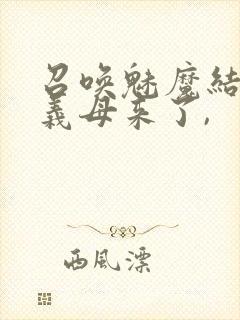 召喚魅魔結
義母來了，
西風漂